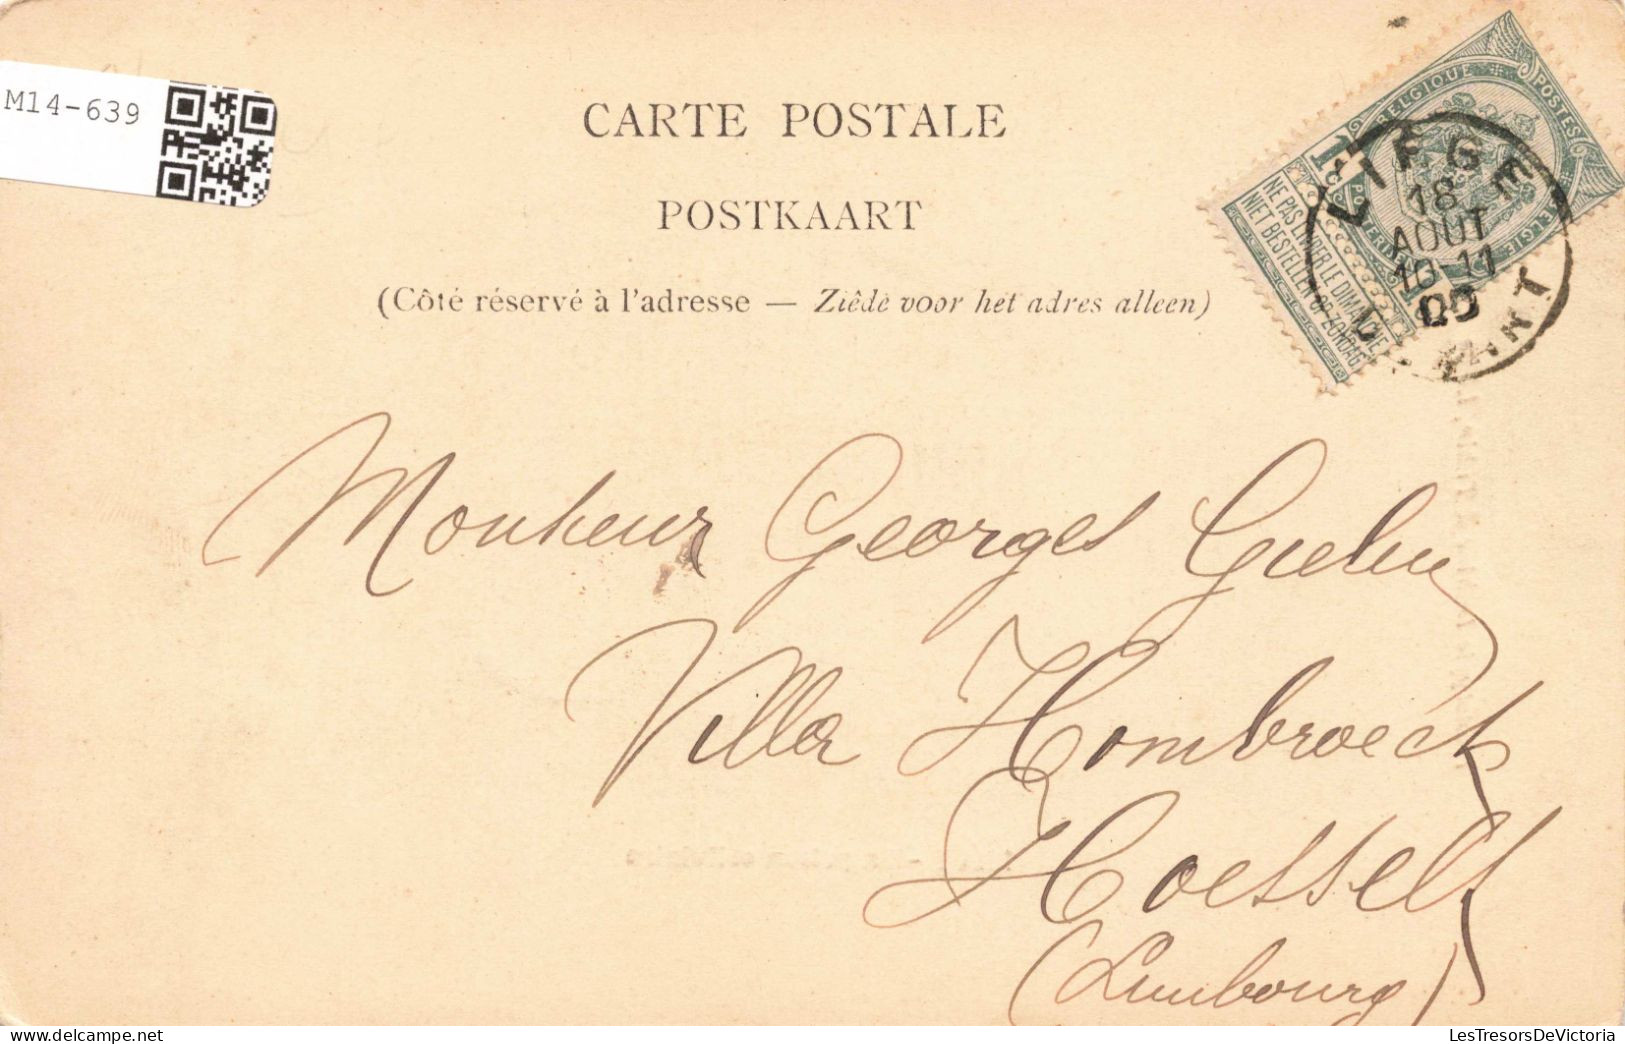 M14-639
CARTE POSTALE
POSTKAART
(Côté réservé à l'adresse — Ziêdè voor het adres alleen)
POSTES
BELGIQUE
NE PAS LIVRER LE DIMANCHE
NIET BESTELLEN OP ZONDAG
LIÉGE
18
AOUT
10-11
00
Monsieur Georges
Villa Hombroeck
Hoesselt
(Limbourg)
LesTresorsDeVictoria